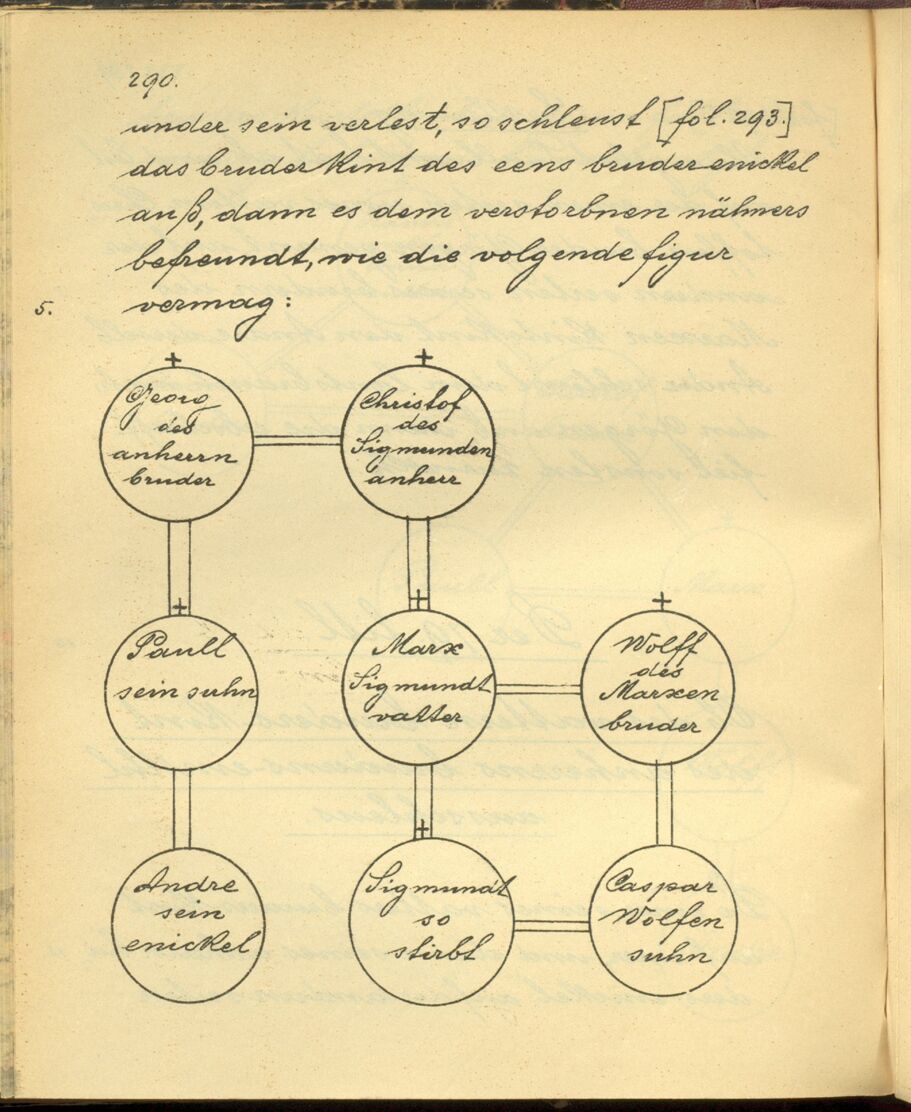 290.
under sein verlest, so schleust [fol. 293.]
das bruder kint des eens bruder enickel
auß, dann es dem verstorbnen nähners
befreundt, wie die volgende figur
5. vermag:
Georg
des
anherrn
bruder
Christof
des
Sigmunden
anherr
Paull
sein suhn
Marx
Sigmundt
vatter
Wolff
des
Marxen
bruder
Andre
sein
enickel
Sigmundt
so
stirbt
Caspar
Wolfen
suhn